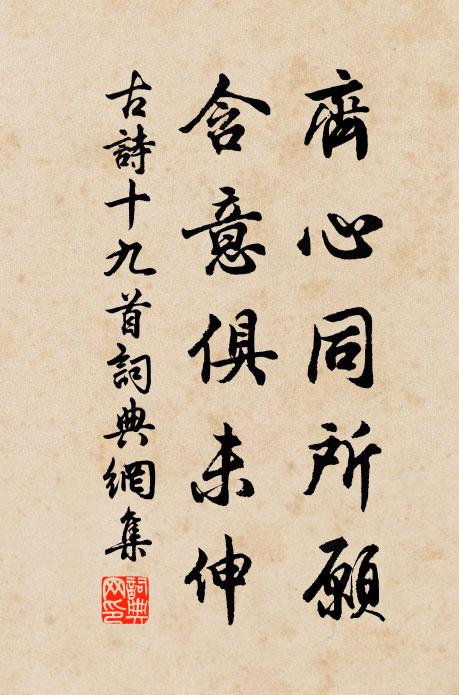 齊心同所願
含意俱未伸
古詩十九首詞典網集
詞典網印